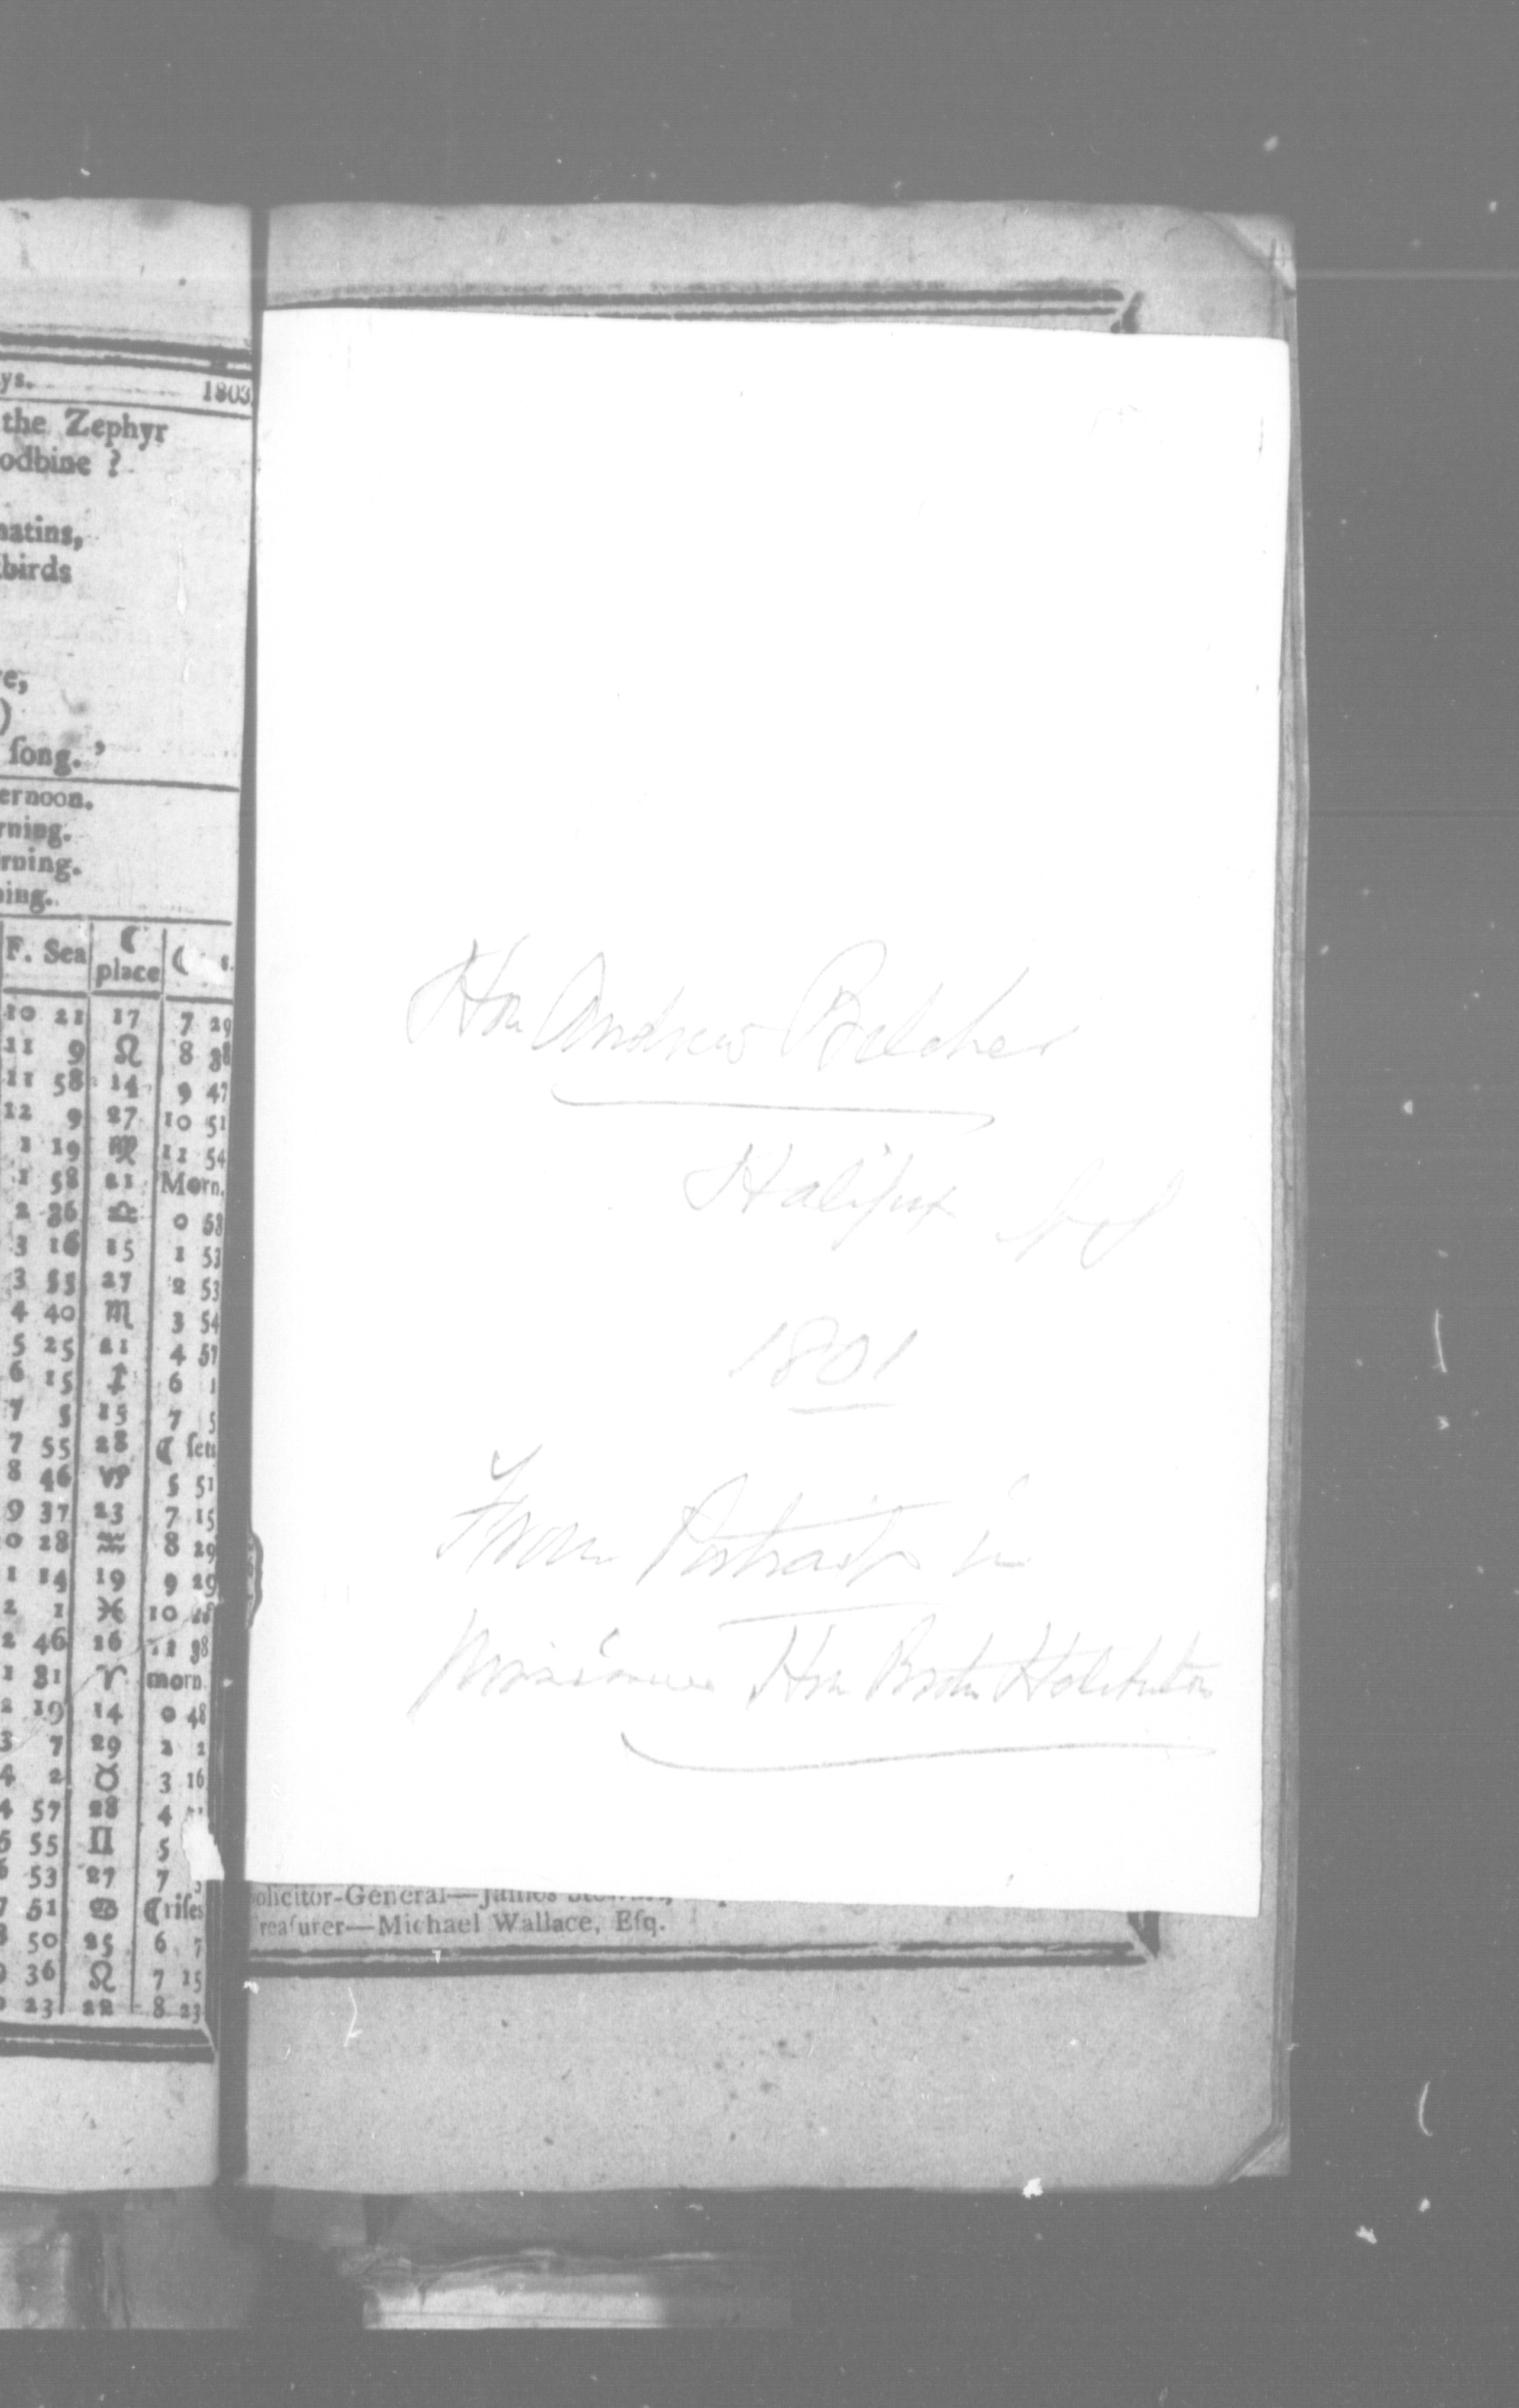 ys. 1803
the Zephyr
odbine ?
natins,
birds
e,
)
ſong.'
ernoon.
rning.
rning.
ning.
F. Sea ☾ place ☾ s.
10 21 17 7 29
11 9 ♌ 8 38
11 58 14 9 47
12 9 27 10 51
1 19 ♍ 11 54
1 58 21 Morn.
2 36 ♎ 0 58
3 16 15 1 53
3 55 27 2 53
4 40 ♏ 3 54
5 25 21 4 57
6 15 ♐ 6 1
7 5 15 7 5
7 55 28 ☾ ſets
8 46 ♑ 5 51
9 37 23 7 15
0 28 ♒ 8 29
1 14 19 9 29
2 1 ♓ 10
2 46 16 11 38
1 31 ♈ morn.
2 19 14 0 48
3 7 29 2 2
4 2 ♉ 3 16
4 57 28 4
5 55 ♊ 5
6 53 27 7
7 51 ♋ ☾riſes
8 50 25 6 7
9 36 ♌ 7 15
23 22 8 23
Hon Andrew Belcher
Halifax
1801
From Portrait in
Hon
olicitor-General—James
reaſurer—Michael Wallace, Eſq.